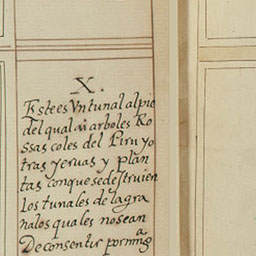 X.
Este es Vn tunal al pie
del qual ai arboles Ro
ssas coles del Piru yo
tras yeruas y plan
tas conquesedestruien
los tunales de lagra
nalos quales nosean
De consentir porning
a